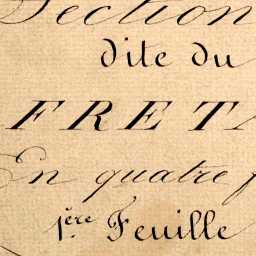 Section
dite du
FRETA
En quatre f
1ère Feuille